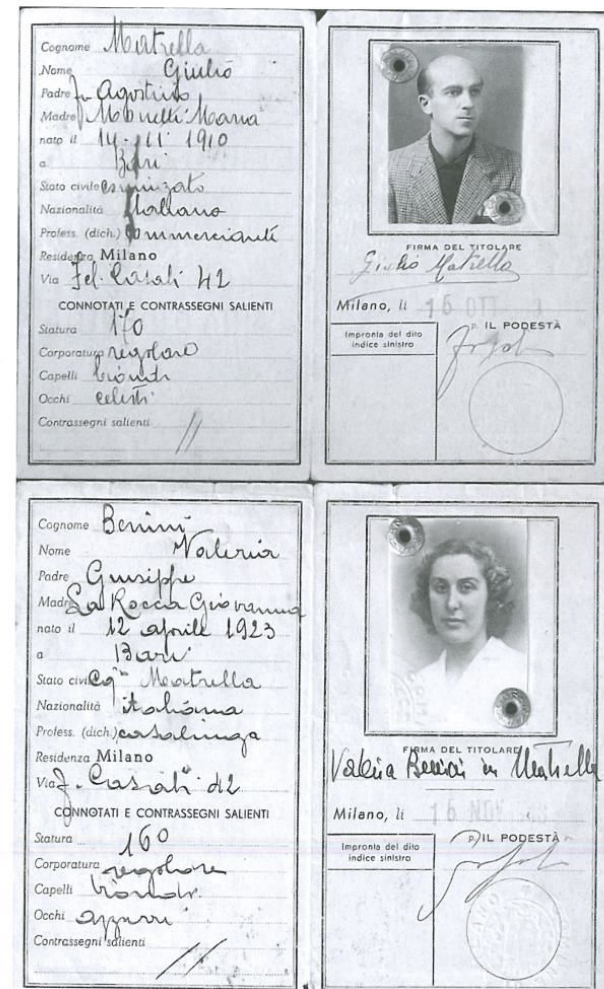 Cognome Matrella
Nome Giulio
Padre fu Agostino
Madre Morelli Maria
nato il 14-11 1910
a Bari
Stato civile coniugato
Nazionalità Italiana
Profess. (dich.) commerciante
Residenza Milano
Via Fel. Casati 42
CONNOTATI E CONTRASSEGNI SALIENTI
Statura 170
Corporatura regolare
Capelli biondi
Occhi celesti
Contrassegni salienti //
FIRMA DEL TITOLARE
Giulio Matrella
Milano, li 16 OTT
Impronta del dito
indice sinistro
p. IL PODESTÀ
Cognome Benini
Nome Valeria
Padre Giuseppe
Madre La Rocca Giovanna
nato il 12 aprile 1923
a Bari
Stato civile Cgta Matrella
Nazionalità italiana
Profess. (dich.) casalinga
Residenza Milano
Via F. Casati 42
CONNOTATI E CONTRASSEGNI SALIENTI
Statura 160
Corporatura regolare
Capelli biondi
Occhi azzurri
Contrassegni salienti //
FIRMA DEL TITOLARE
Valeria Benini in Matrella
Milano, li 16 NOV
Impronta del dito
indice sinistro
p. IL PODESTÀ